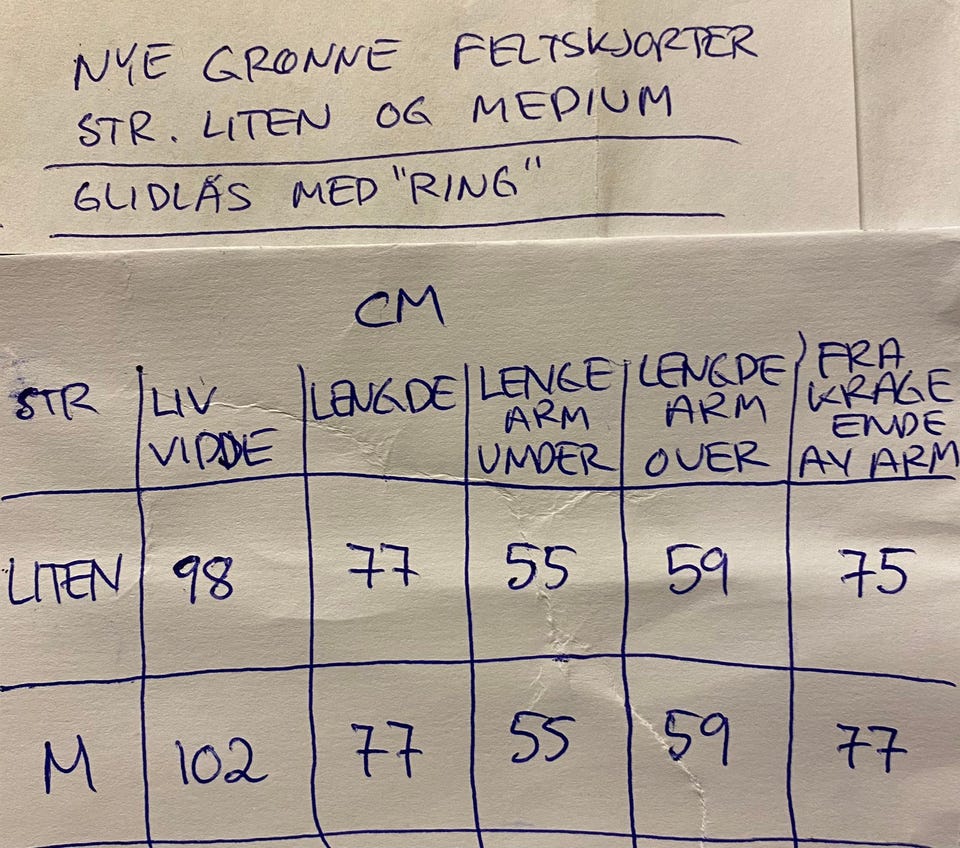 NYE GRØNNE FELTSKJORTER
STR. LITEN OG MEDIUM
GLIDLÅS MED "RING"
CM
STR LIV VIDDE LENGDE LENGE ARM UNDER LENGDE ARM OVER FRA KRAGE ENDE AV ARM
LITEN 98 77 55 59 75
M 102 77 55 59 77